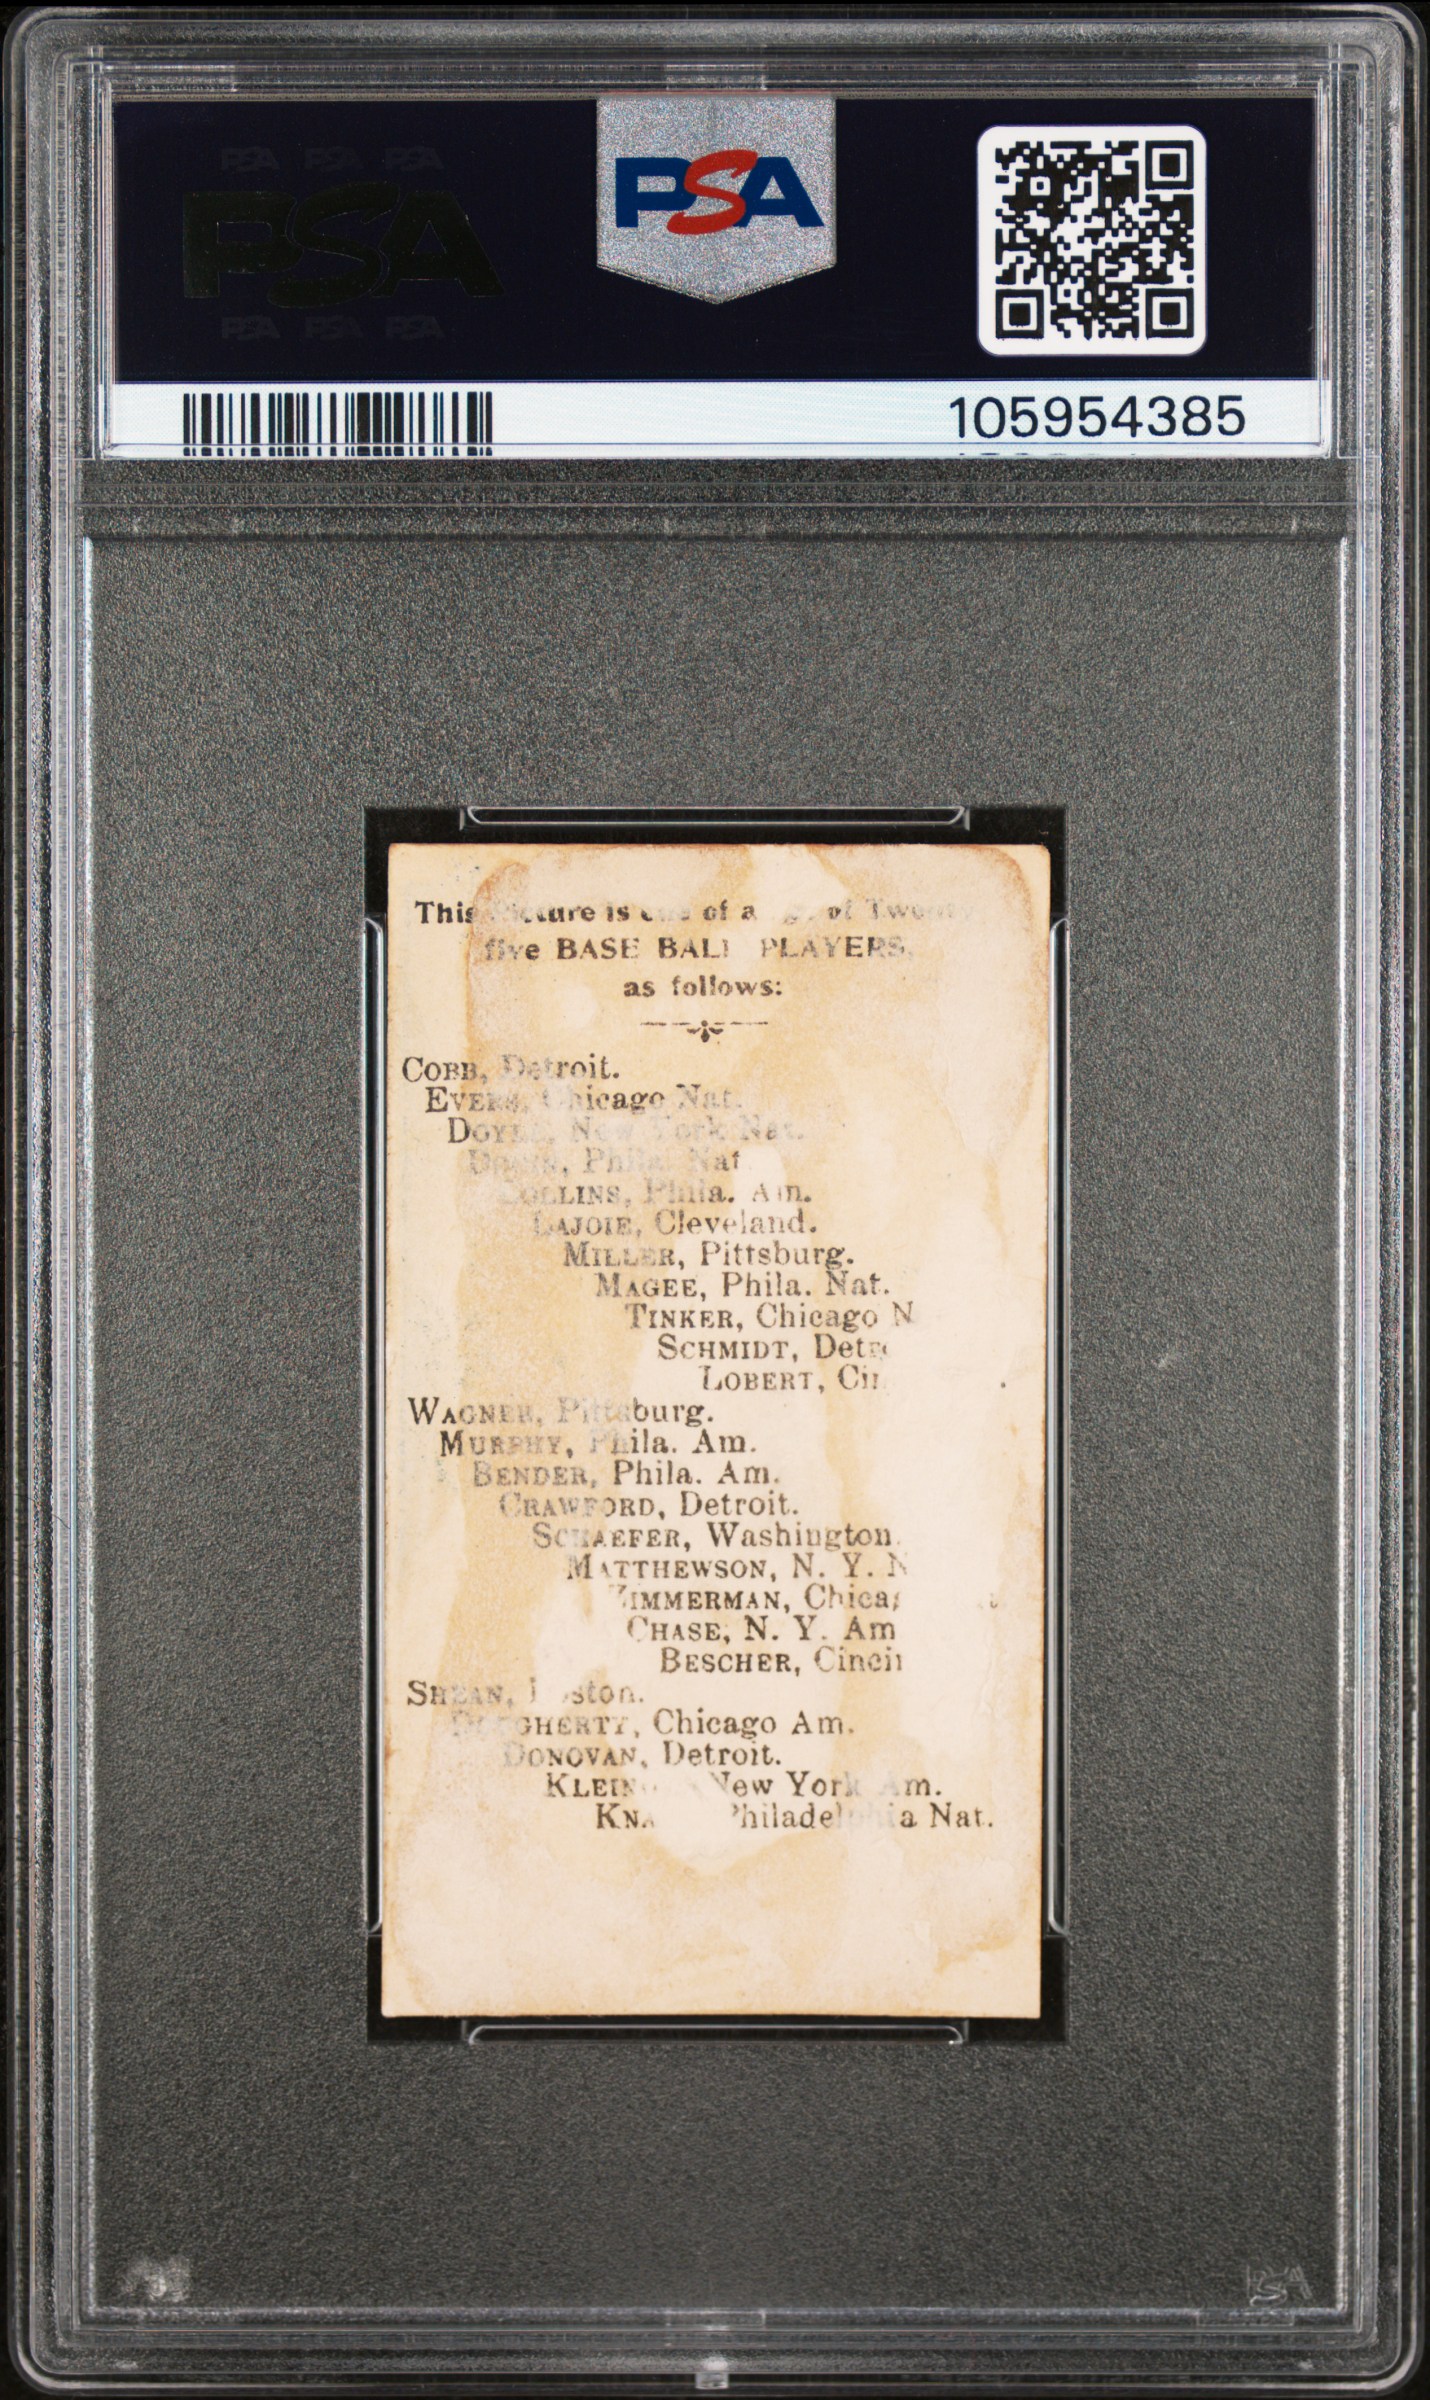 PSA PSA PSA
PSA
PSA PSA PSA
PSA
105954385
This Picture is one of a of Twenty
five BASE BALL PLAYERS,
as follows:
COBB, Detroit.
EVERS, Chicago Nat.
DOYLE, New York Nat.
Phila. Nat
COLLINS, Phila. Am.
LAJOIE, Cleveland.
MILLER, Pittsburg.
MAGEE, Phila. Nat.
TINKER, Chicago N
SCHMIDT, Detro
LOBERT, Cin
WAGNER, Pittsburg.
MURPHY, Phila. Am.
BENDER, Phila. Am.
CRAWFORD, Detroit.
SCHAEFER, Washington.
MATTHEWSON, N. Y. N
ZIMMERMAN, Chicag t
CHASE, N. Y. Am
BESCHER, Cincin
SHEAN, Boston.
DOUGHERTY, Chicago Am.
DONOVAN, Detroit.
KLEIN New York Am.
KNA Philadelphia Nat.
PSA